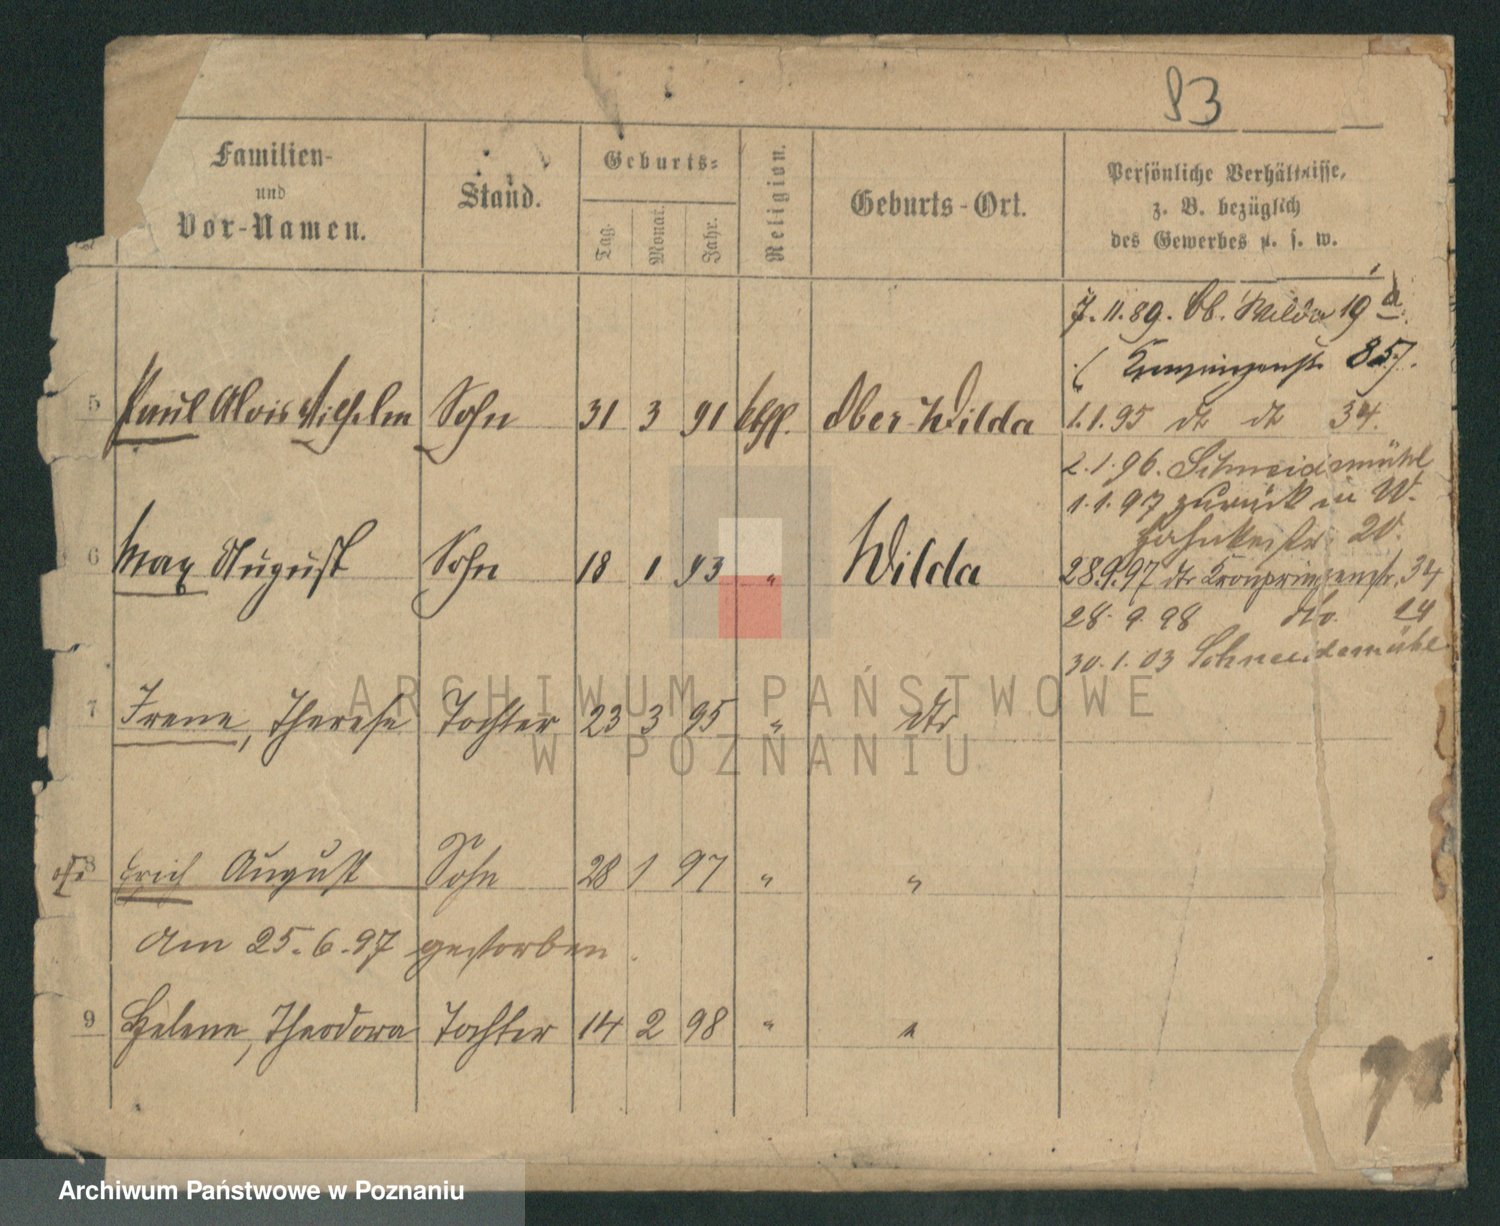 83
Familien-
und
Vor-Namen.
Stand.
Geburts-
Tag.
Monat.
Jahr.
Religion.
Geburts-Ort.
Persönliche Verhältnisse,
z. B. bezüglich
des Gewerbes u. s. w.
7. 11. 89. Ob. Wilda 19 a.
( Kronprinzenstr. 85).
5 Paul Alois Wilhelm Sohn 31 3 91 kath. Ober-Wilda 1.1.95 dt dt 34.
2.1.96. Schneidemühl
1.1.97 zurück in W.
20.
6 Max August Sohn 18 1 93 " Wilda 28.9.97 dto Kronprinzenstr. 34
28.9.98 dto. 14
30.1.03 Schneidemühl
7 Irene, Therese Tochter 23 3 95 " dto
8 Erich August Sohn 28 1 97 " "
am 25.6.97 gestorben.
9 Helene, Theodora Tochter 14 2 98 " "
ARCHIWUM PAŃSTWOWE
W POZNANIU
Archiwum Państwowe w Poznaniu